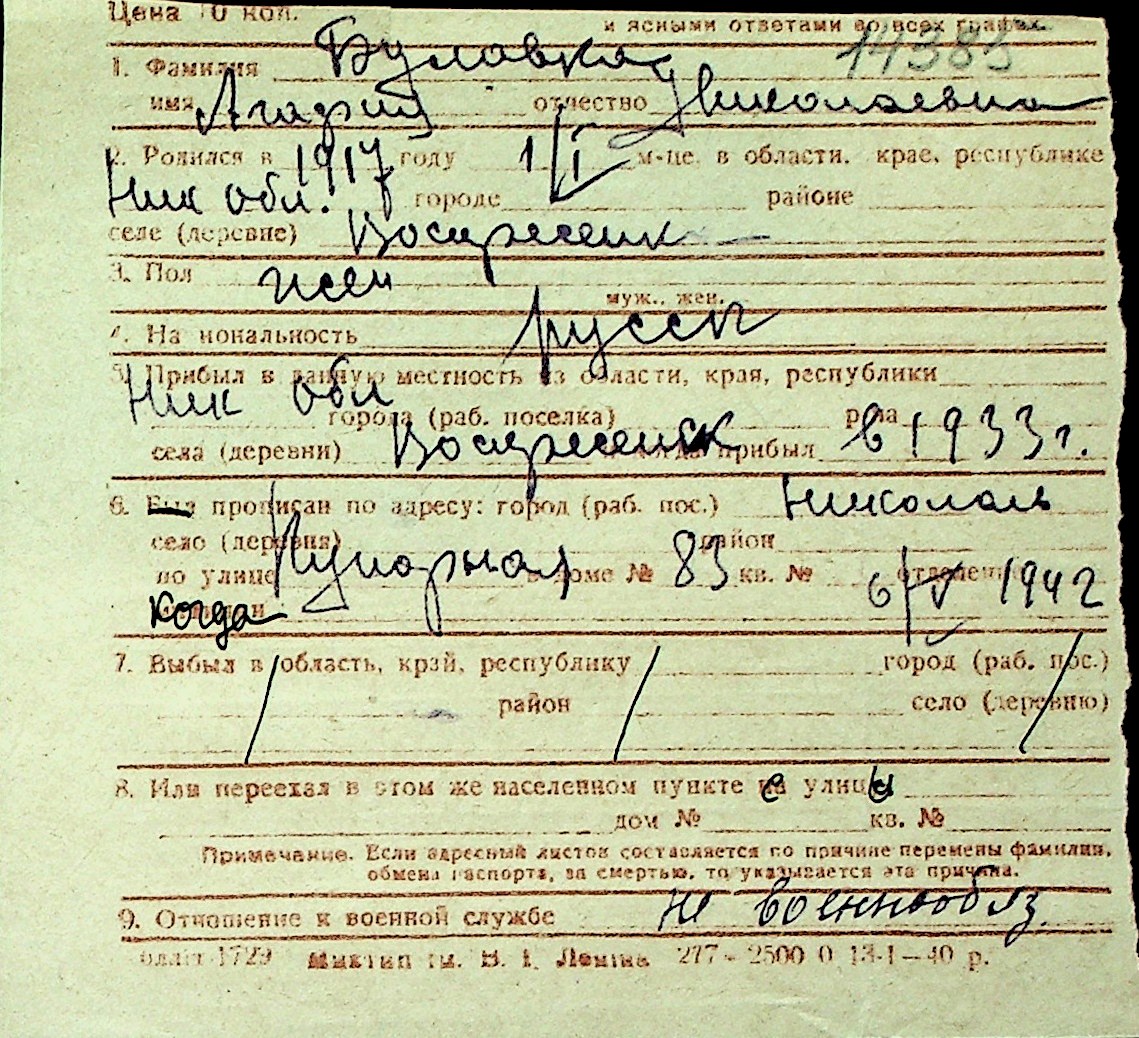 Цена 10 коп.
и ясными ответами во всех графах
14383
1. Фамилия Буловка
имя Агафия отчество Николаевна
2. Родился в 1917 году 1/I м-це. в области. крае, республике
Ник обл. городе районе
селе (деревне) Воскресенск
3. Пол жен
муж., жен.
4. Национальность русск
5. Прибыл в данную местность из области, края, республики
Ник обл города (раб. поселка) р-на
села (деревни) Воскресенск прибыл в 1933 г.
6. Был прописан по адресу: город (раб. пос.) Николаев
село (деревня) район
по улице в доме № 83 кв. № отделение
когда 6/V 1942
7. Выбыл в область, край, республику город (раб. пос.)
район село (деревню)
8. Или переехал в этом же населенном пункте с улицы
дом № кв. №
Примечание. Если адресный листок составляется по причине перемены фамилии,
обмена паспорта, за смертью, то указывается эта причина.
9. Отношение к военной службе не военнообяз.
1729 им. В. І. Леніна 277 - 2500 0 13-I-40 р.